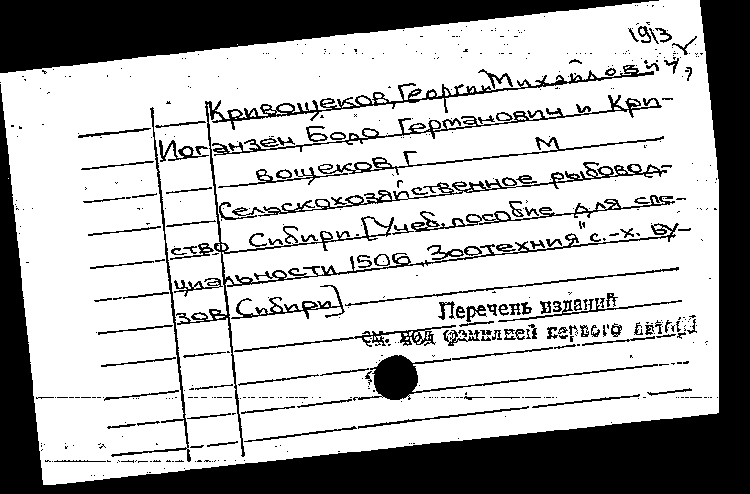 1913
Кривощеков, Георгий Михайлович,
Иоганзен, Бодо Германович и Кри-
вощеков, Г М
Сельскохозяйственное рыбовод-
ство Сибири. [Учеб. пособие для спе-
циальности 1506 „Зоотехния" с.-х. ву-
зов Сибири].
Перечень изданий
см. под фамилией первого автора